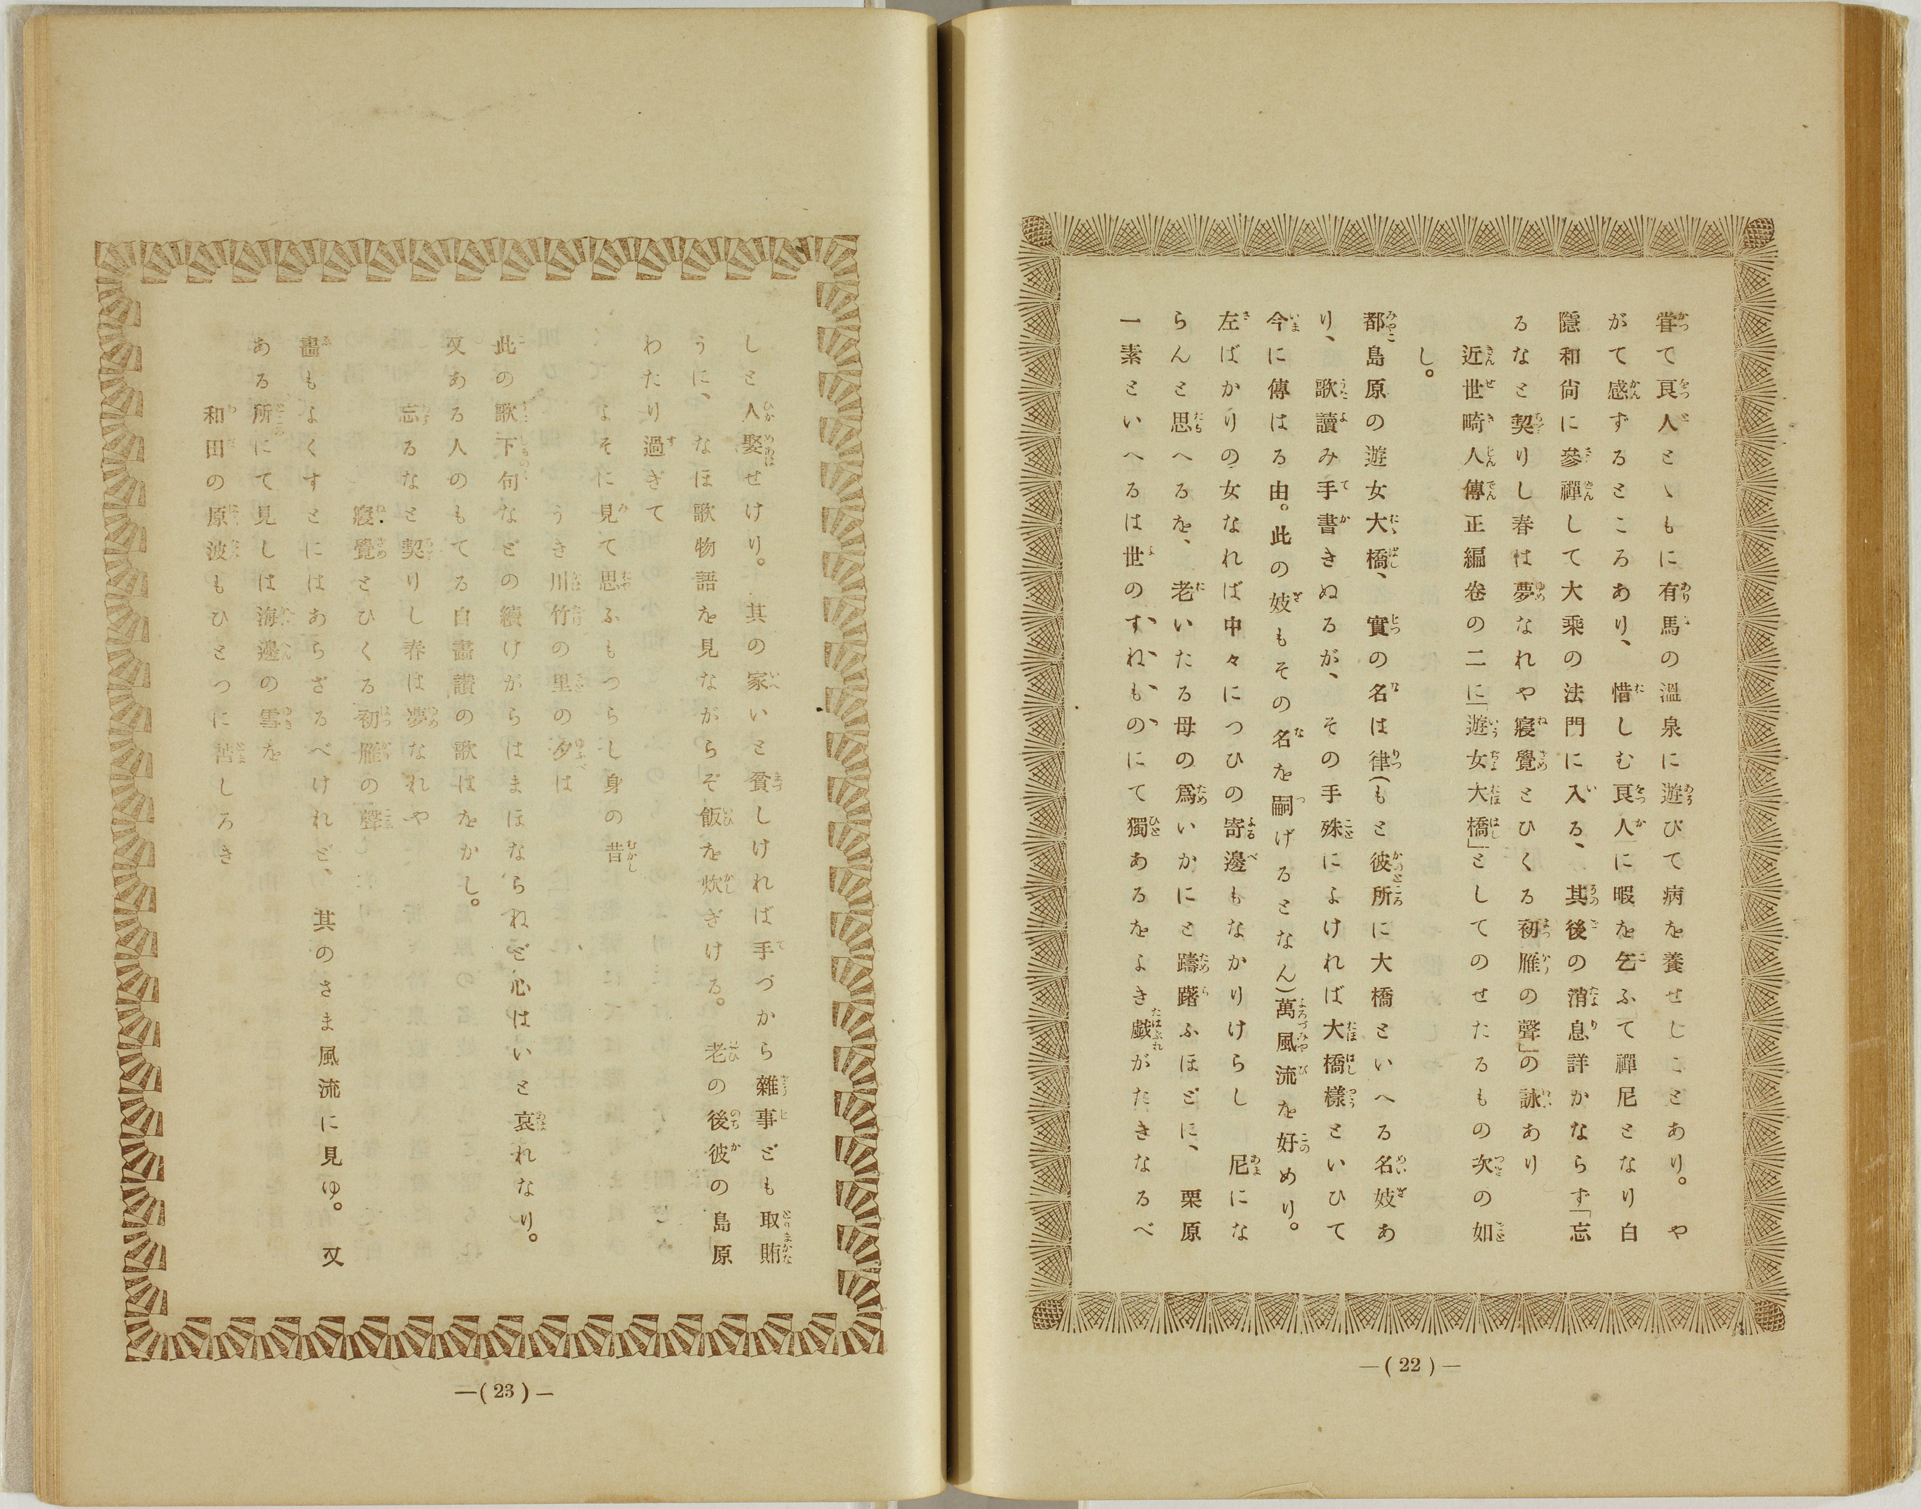 嘗て良人とゝもに有馬の溫泉に遊びて病を養せしことあり。や
がて感ずるところあり、惜しむ良人に暇を乞ふて禪尼となり白
隱和尙に參禪して大乘の法門に入る、其後の消息詳かならず「忘
るなと契りし春は夢なれや寢覺とひくる初雁の聲」の詠あり
近世畸人傳正編卷の二に「遊女大橋」としてのせたるもの次の如
し。
都島原の遊女大橋、實の名は律(もと彼所に大橋といへる名妓あ
り、歌讀み手書きぬるが、その手殊によければ大橋樣といひて
今に傳はる由。此の妓もその名を嗣げるとなん)萬風流を好めり。
左ばかりの女なれば中々につひの寄邊もなかりけらし 尼にな
らんと思へるを、老いたる母の爲いかにと躊躇ふほどに、栗原
一素といへるは世のすねものにて獨あるをよき戯がたきなるべ
—(22)—
しと人娶せけり。其の家いと貧しければ手づから雜事ども取賄
うに、なほ歌物語を見ながらぞ飯を炊ぎける。老の後彼の島原
わたり過ぎて
よそに見て思ふもつらし身の昔
うき川竹の里の夕は
此の歌下句などの續けがらはまほならねど心はいと哀れなり。
又ある人のもてる自畵讃の歌はをかし。
忘るなと契りし春は夢なれや
寢覺とひくる初雁の聲
畵もよくすとにはあらざるべけれど、其のさま風流に見ゆ。又
ある所にて見しは海邊の雪を
和田の原波もひとつに苫しろき
—(23)—